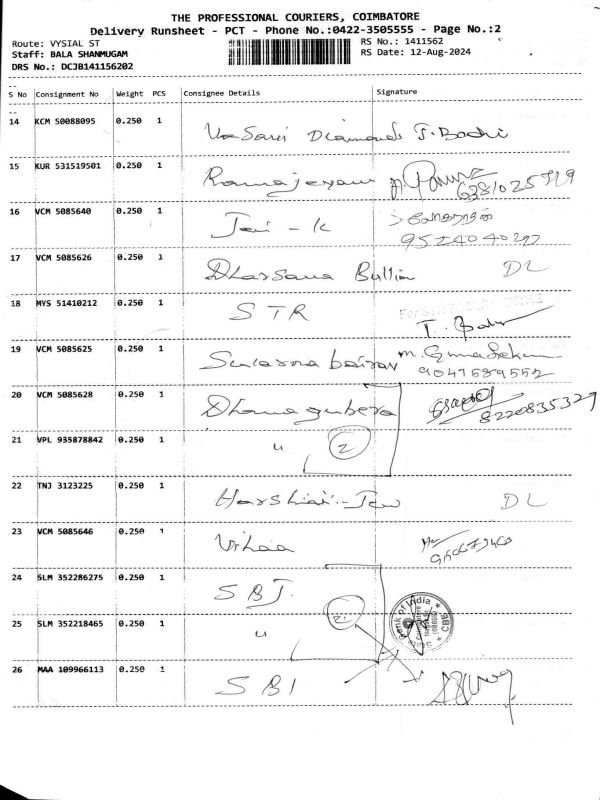 THE PROFESSIONAL COURIERS, COIMBATORE
Delivery Runsheet - PCT - Phone No.:0422-3505555 - Page No.:2
Route: VYSIAL ST
RS No.: 1411562
Staff: BALA SHANMUGAM
RS Date: 12-Aug-2024
DRS No.: DCJB141156202
S No Consignment No Weight PCS Consignee Details Signature
14 KCM 50088095 0.250 1 Diamonds
15 KUR 531519501 0.250 1
16 VCM 5085640 0.250 1 Jai - K
9524040297
17 VCM 5085626 0.250 1 Dharsana Bullion DL
18 MYS 51410212 0.250 1 STR
19 VCM 5085625 0.250 1
9047589552
20 VCM 5085628 0.250 1 Dhanagubera
8220835329
21 VPL 935878842 0.250 1 " 2
22 TNJ 3123225 0.250 1 DL
23 VCM 5085646 0.250 1 Vihaa
24 SLM 352286275 0.250 1 SBI
25 SLM 352218465 0.250 1 " 2
Bank of India
26 MAA 109966113 0.250 1 SBI